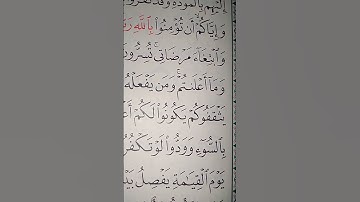 إِلَيْهِم بِٱلْمَوَدَّةِ وَقَدْ كَفَرُوا۟
وَإِيَّاكُمْ أَن تُؤْمِنُوا۟ بِٱللَّهِ
وَٱبْتِغَآءَ مَرْضَاتِى ۚ تُسِرُّونَ
وَمَآ أَعْلَنتُمْ ۚ وَمَن يَفْعَلْهُ
يَثْقَفُوكُمْ يَكُونُوا۟ لَكُمْ
بِٱلسُّوٓءِ وَوَدُّوا۟ لَوْ تَكْفُرُ
يَوْمَ ٱلْقِيَـٰمَةِ يَفْصِلُ